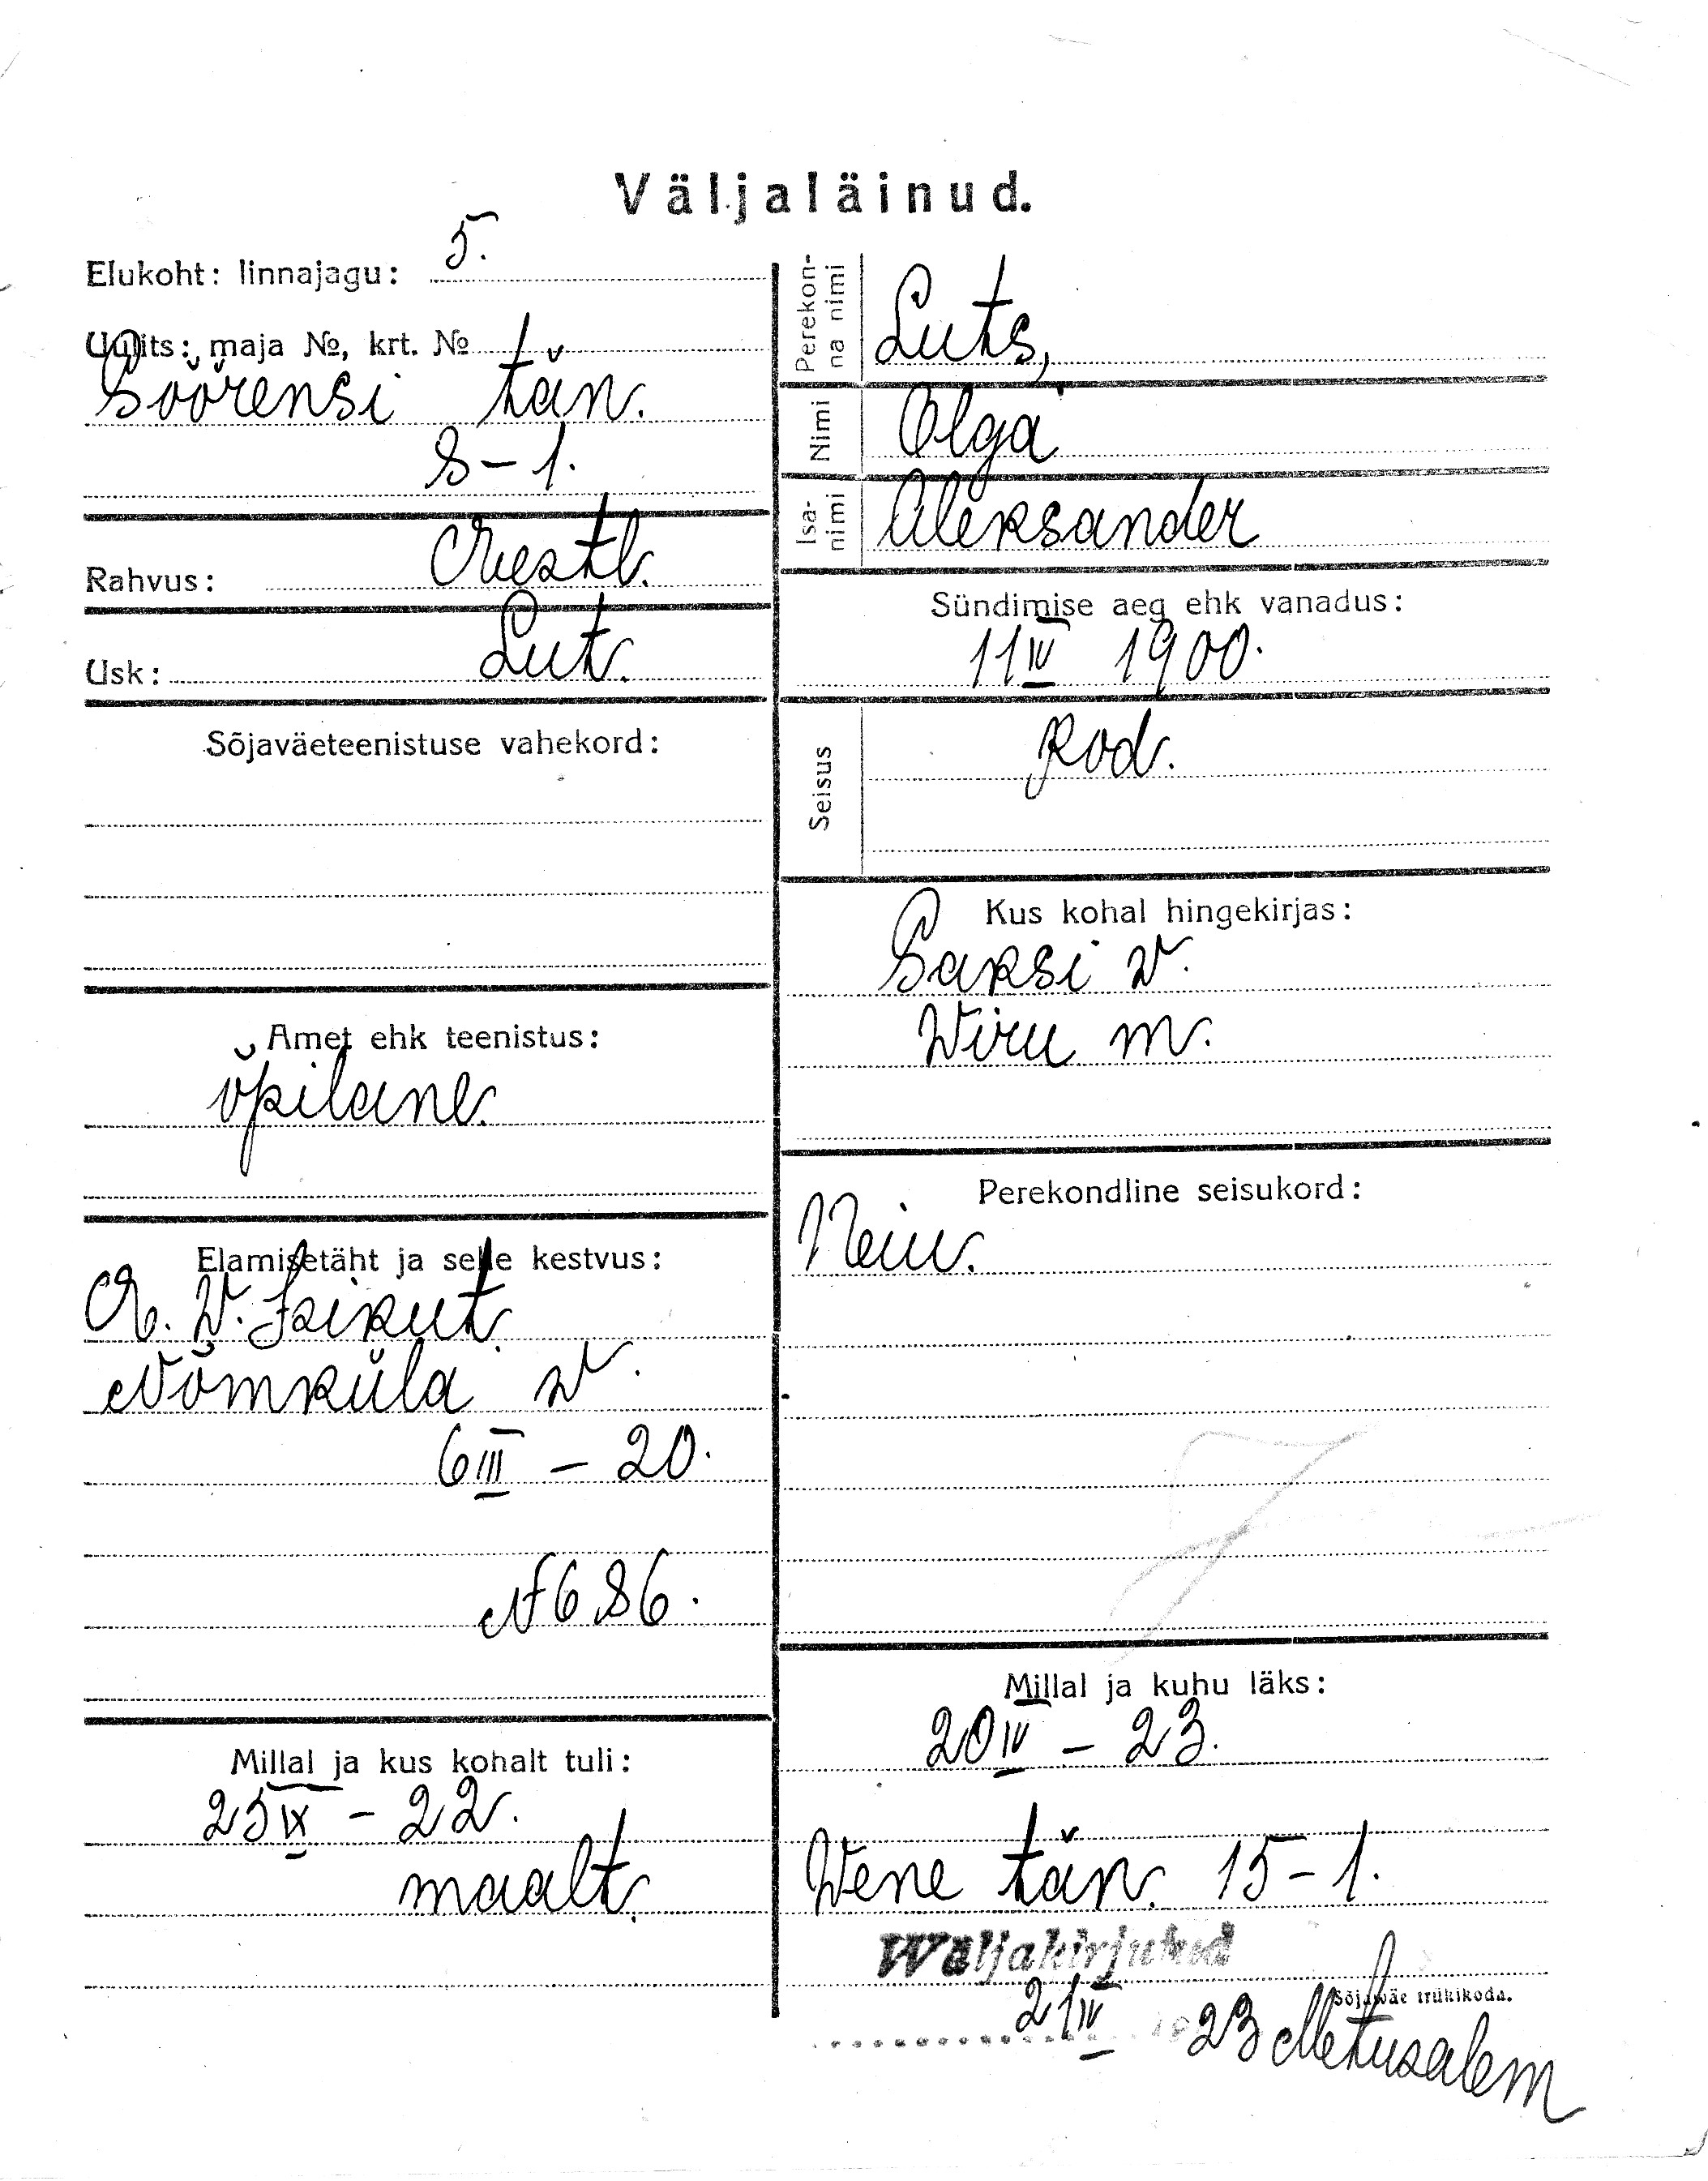 Väljaläinud.
Elukoht: linnajagu: 5.
Uulits: maja №, krt. №
Söörensi tän.
8-1.
Rahvus: Eestl.
Usk: Lut.
Sõjaväeteenistuse vahekord:
Amet ehk teenistus:
õpilane.
Elamisetäht ja selle kestvus:
E. W. Isikut.
Nõmküla w.
6 III - 20.
№ 686.
Millal ja kus kohalt tuli:
25 IX - 22.
maalt.
Perekonna nimi Luts,
Nimi Olga
Isanimi Aleksander
Sündimise aeg ehk vanadus:
11 IV 1900.
Seisus kod.
Kus kohal hingekirjas:
Saksi w.
Wiru m.
Perekondline seisukord:
Neiu.
Millal ja kuhu läks:
20 IV - 23.
Wene tän. 15-1.
Wäljakirjutud
Sõjawäe trükikoda.
21 IV 1923 Metusalem